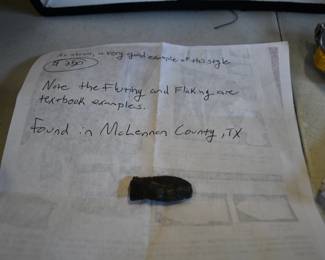 As shown, a very good example of this style
Note the Fluting and Flaking are
textbook examples.
Found in McLennan County, TX